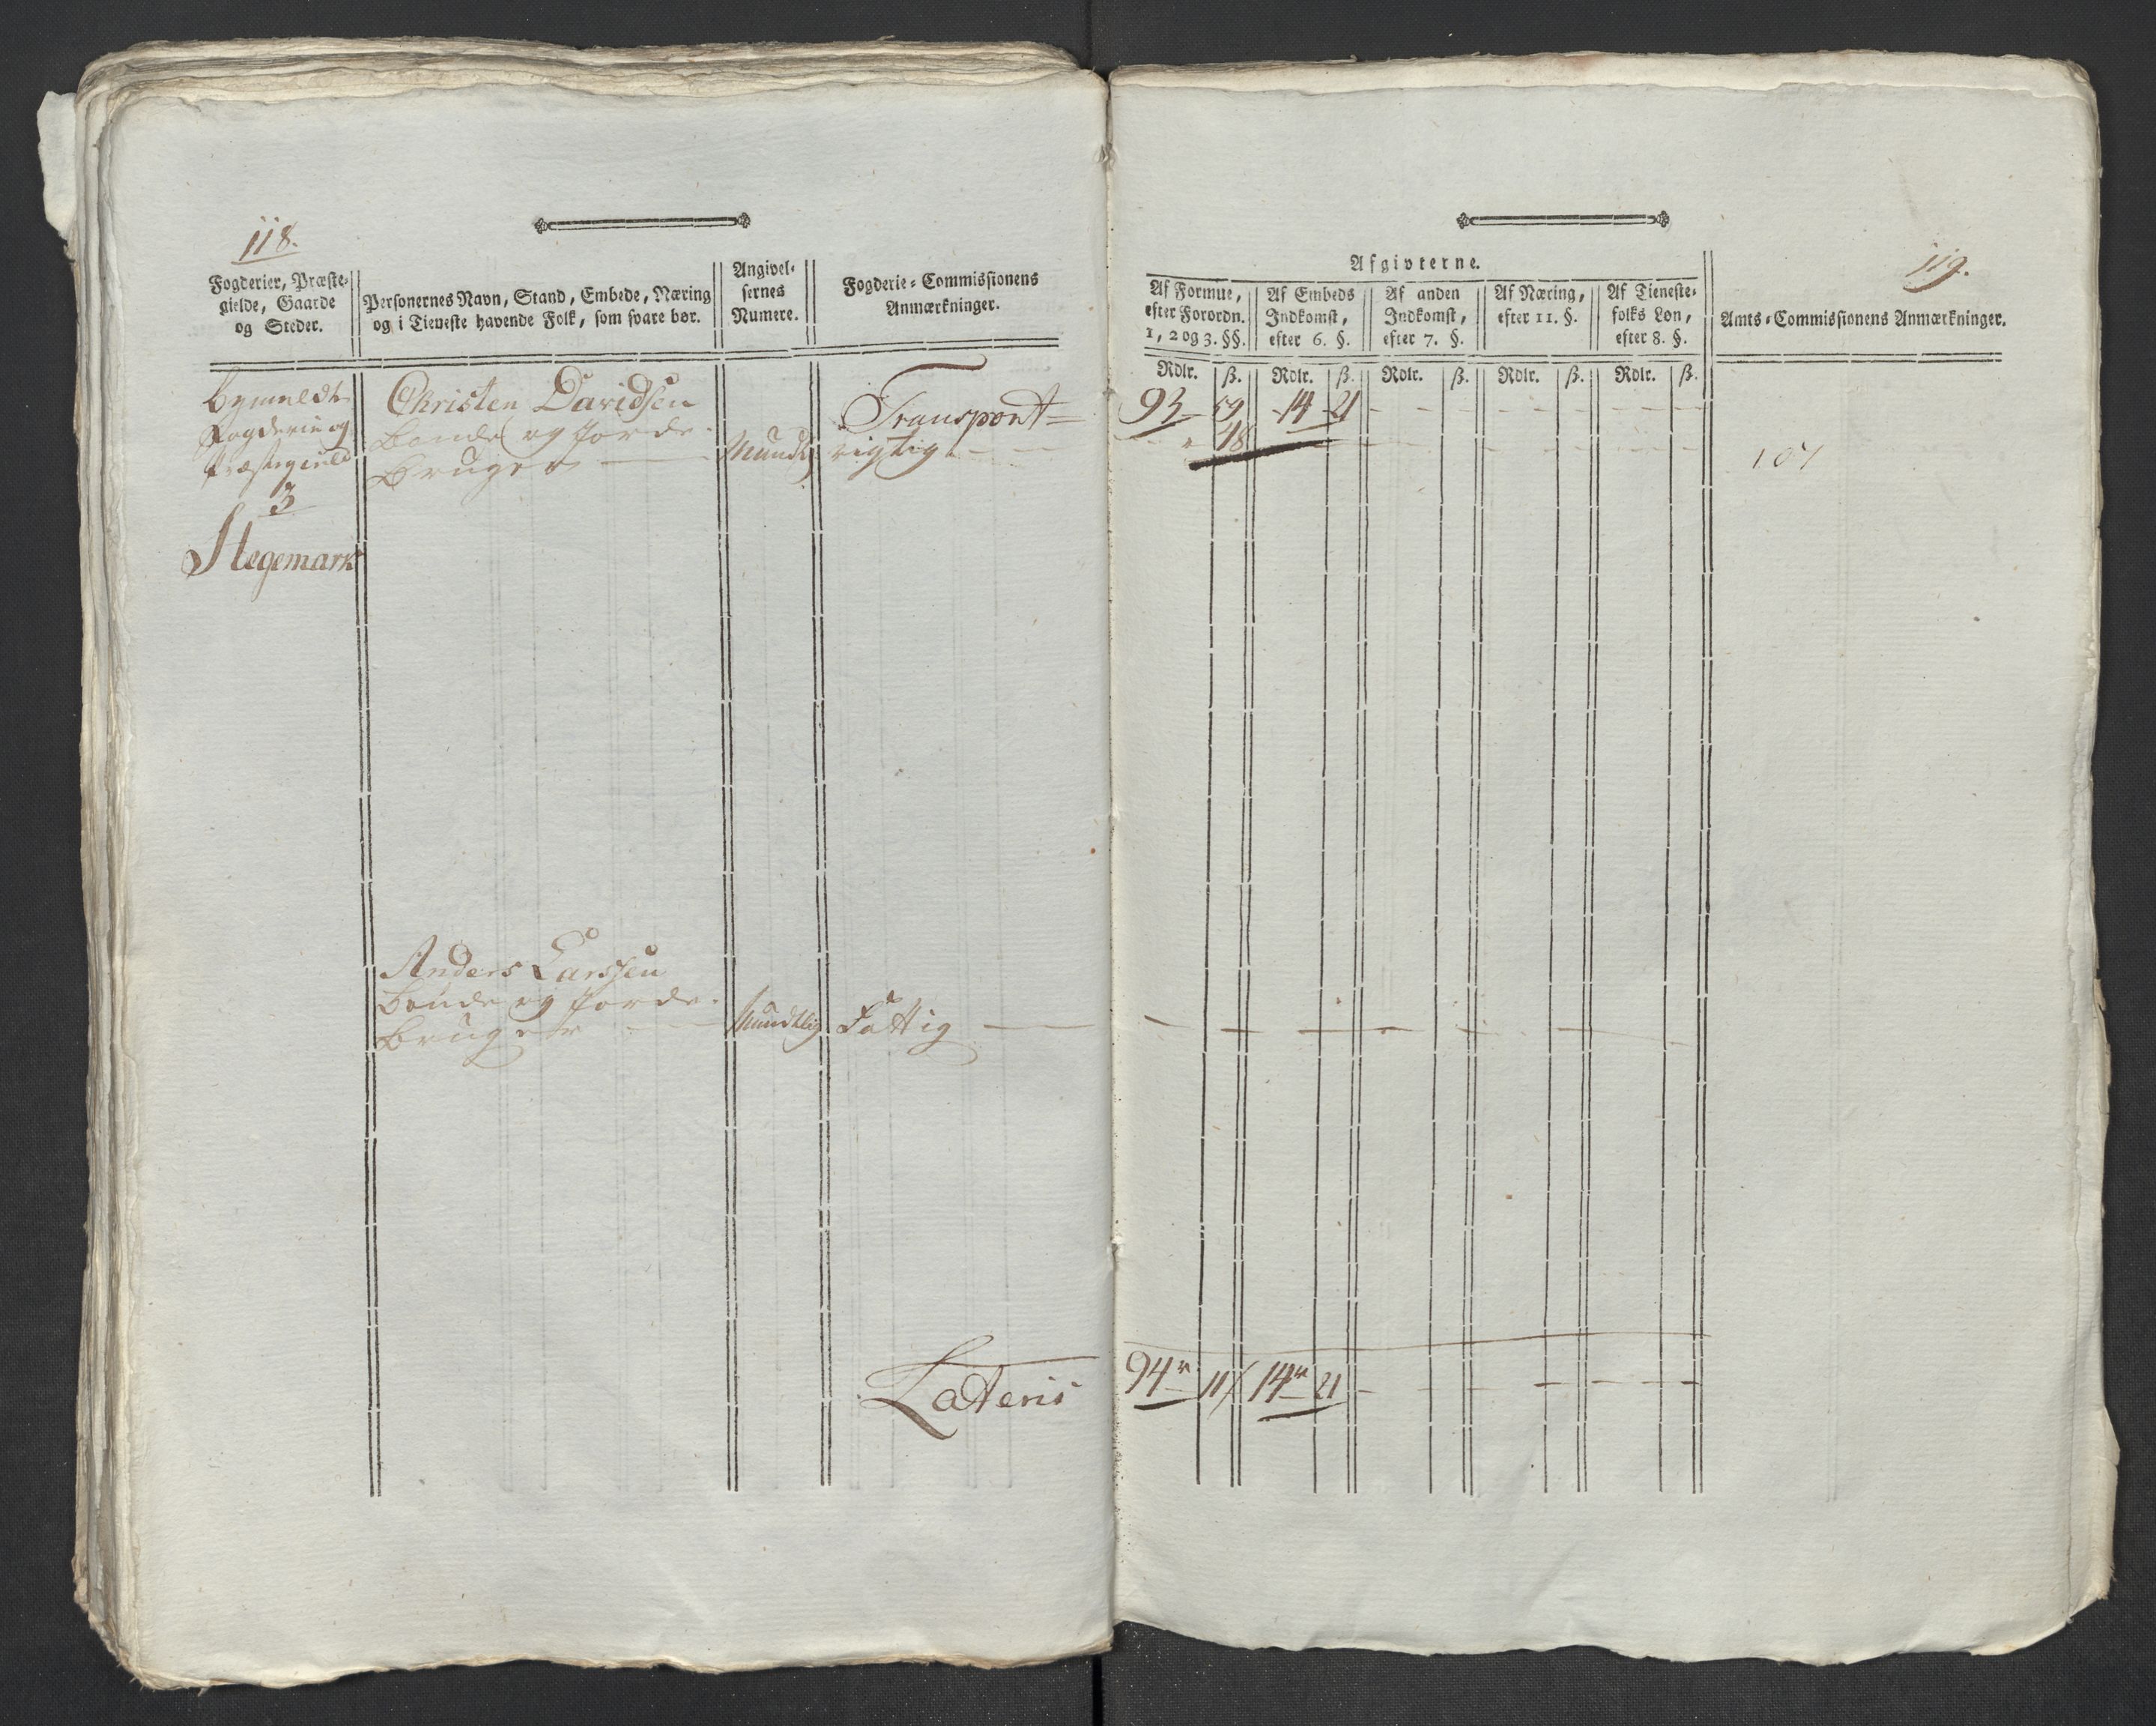 118.
Fogderier, Præste-
gielde, Gaarde
og Steder.
Personernes Navn, Stand, Embede, Næring
og i Tieneste havende Folk, som svare bør.
Angivel-
sernes
Numere.
Fogderie-Commissionens
Anmærkninger.
Bymeldt
Fogderie og
Præstegield
3
Stegemark
Christen Davidsen
Bonde og Jorde-
Bruger
Mundtl
Transport
rigtig
Anders Larssen
Bonde og Jorde-
Bruger
Mundtlig
Fattig
Lateris
119.
Afgivterne.
Af Formue,
efter Forordn.
1, 2 og 3. §§.
Af Embeds
Indkomst,
efter 6. §.
Af anden
Indkomst,
efter 7. §.
Af Næring,
efter 11. §.
Af Tieneste-
folks Løn,
efter 8. §.
Amts-Commissionens Anmærkninger.
Rdlr. ß. Rdlr. ß. Rdlr. ß. Rdlr. ß. Rdlr. ß.
93 59 14 21
48
107
94 11 14 21